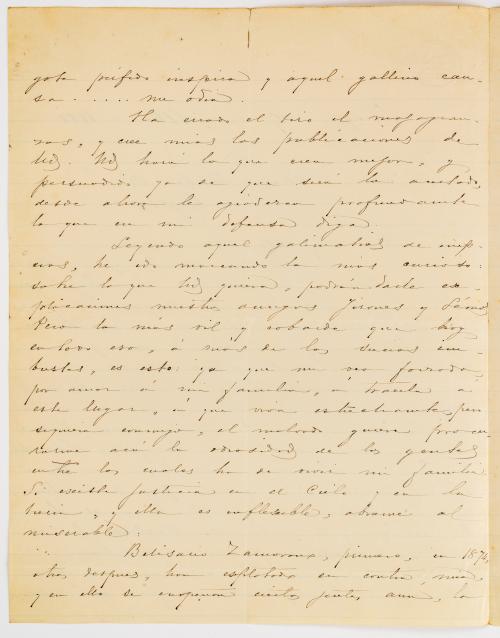 gota pérfido inspira y aquel gallino cau-
sa . . . . . me odia.
Ha errado el tiro el
y cree mias las publicaciones de
Ud. Ud hará lo que crea mejor, y
persuadido ya de que será lo acertado,
desde ahora le agradezco profundamente
lo que en mi defensa diga.
Leyendo aquel galimatias de
he ido marcando lo mas curioso:
sobre lo que Ud quiera, podrán darle ex-
plicaciones nuestros amigos Jirones y
Pero lo más vil y cobarde que hay
en todo eso, á mas de los sucios em-
bustes, es esto: ya que me veo forzado,
por amor á mi familia, á traerla a
este lugar, á que viva estrechamente, pen-
conmigo, el malvado quiere procu-
rarme acá la odiosidad de las gentes
entre las cuales ha de vivir mi familia
Si existe justicia en el Cielo y en la
tierra, y ella es inflexible, abrume al
miserable.
Belisario Zamorano, primero, en 1874,
otros despues, han explotado en contra mia,
y en ello se empeñan ciertas jentes aun, la